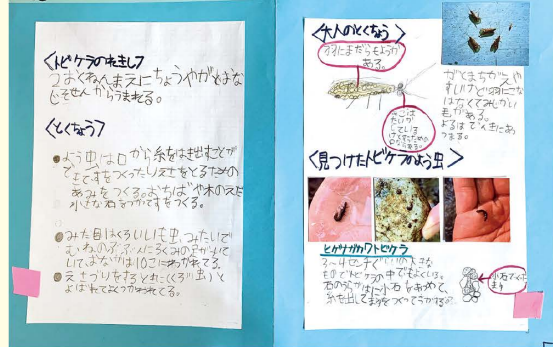 〈トビケラのれきし〉
2おくねんまえにちょうやがとおな
じそせんからうまれる。
〈とくちょう〉
●よう虫は口から糸をはき出すことが
できてすをつくったりえさをとるための
あみをつくる。おちばや木のえだ
小さな石をつかってすをつくる。
●みた目はくろいいも虫みたいで
むねのぶぶんに6本の
は10こにわかれてる。
●えさつりをするときにくろ虫と
よばれてよくつかわれてる。
〈大人のとくちょう〉
羽にまだらもようが
ある。
がとまちがえや
すいけど羽にこな
はなくてみじかい
毛がある。
よるはでん気にあ
つまる。
〈見つけたトビケラのよう虫〉
ヒゲナガカワトビケラ
3〜4センチぐらいの大きな
ものでトビケラの中でもよくいる。
石のうらがわに小石をあつめて、
糸を出して
小石で